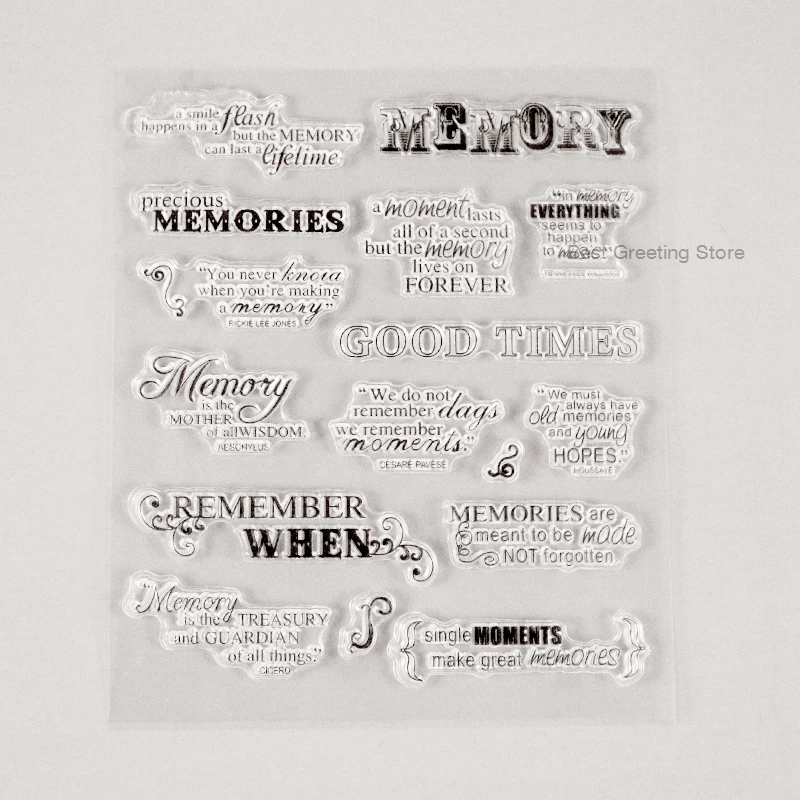 a smile
happens in a flash
but the MEMORY
can last a lifetime
MEMORY
precious
MEMORIES
a moment lasts
all of a second
but the memory
lives on
FOREVER
"in memory
EVERYTHING
seems to
happen
to music"
Best Greeting Store
"You never know
when you're making
a memory"
RICKIE LEE JONES
GOOD TIMES
Memory
is the
MOTHER
of all WISDOM.
AESCHYLUS
"We do not
remember days
we remember
moments."
CESARE PAVESE
"We must
always have
old memories
and young
HOPES."
HOUSSAYE
REMEMBER
WHEN
MEMORIES are
meant to be made
NOT forgotten
"Memory
is the TREASURY
and GUARDIAN
of all things."
CICERO
single MOMENTS
make great memories